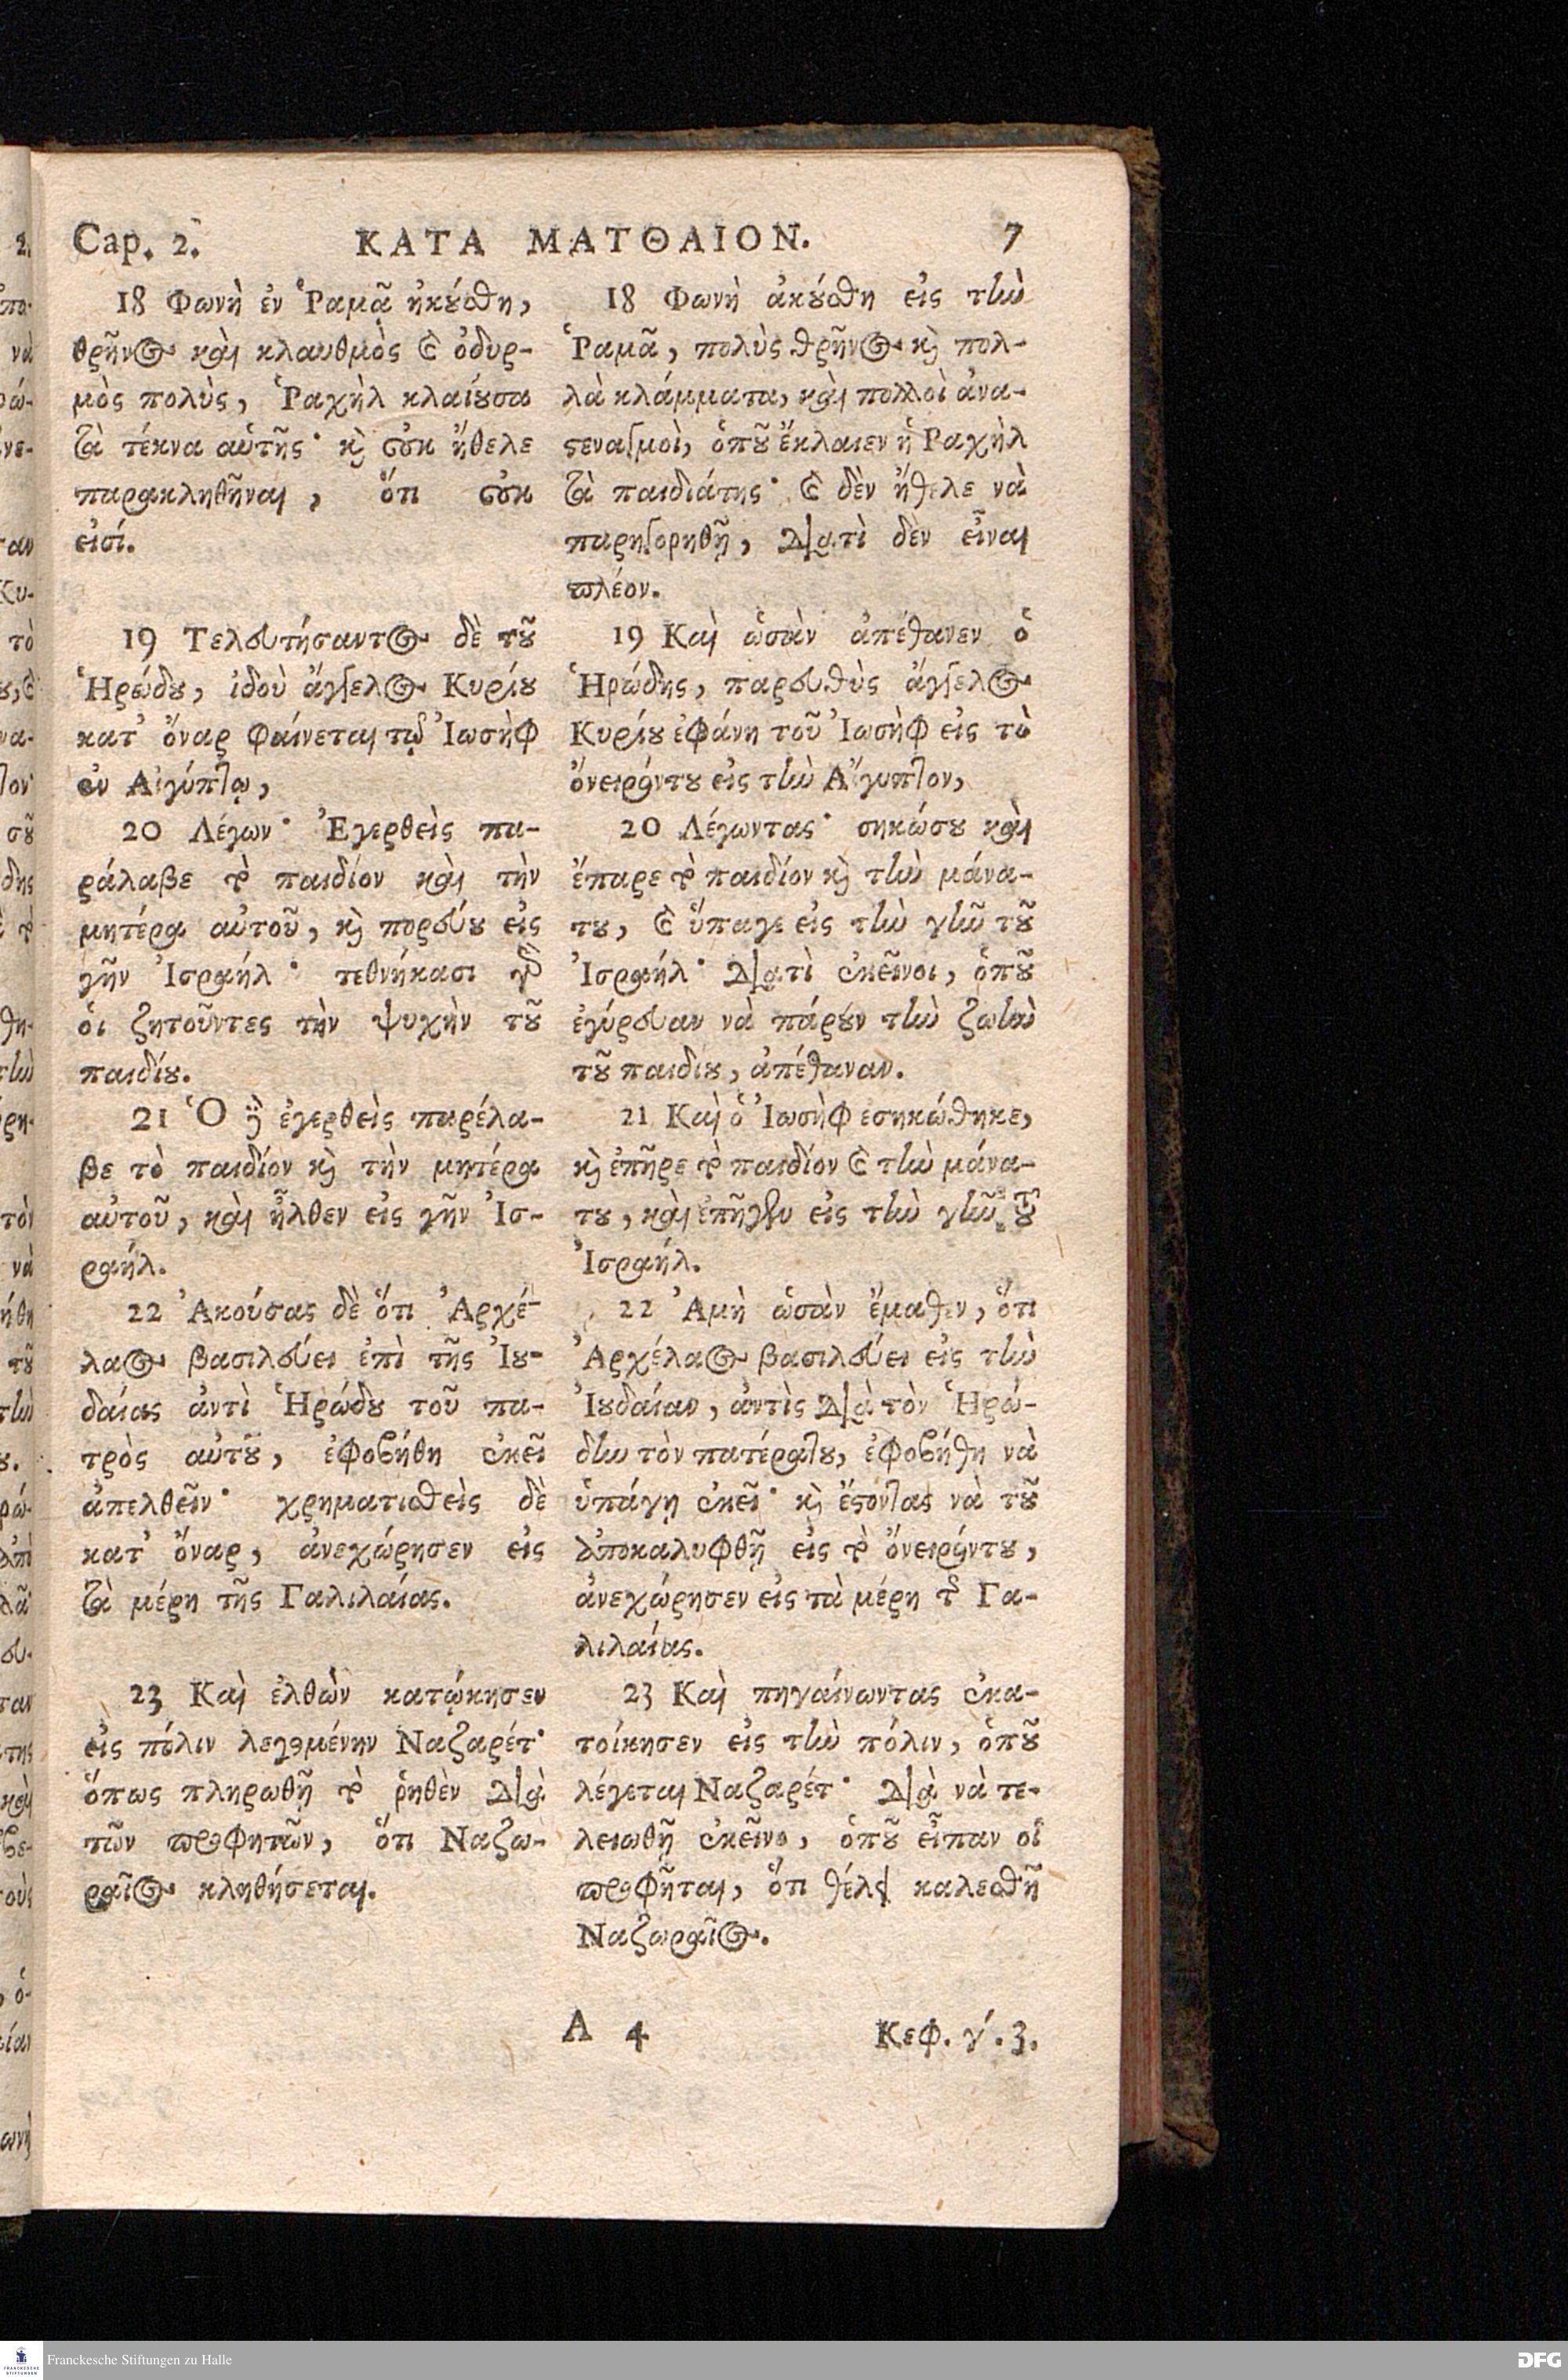 Cap. 2. ΚΑΤΑ ΜΑΤΘΑΙΟΝ. 7
18 Φωνὴ ἐν Ῥαμᾷ ἠκούσθη,
θρῆνος καὶ κλαυθμὸς καὶ ὀδυρ-
μὸς πολὺς, Ῥαχὴλ κλαίουσα
τὰ τέκνα αὑτῆς· καὶ οὐκ ἤθελε
παρακληθῆναι, ὅτι οὐκ
εἰσί.
19 Τελευτήσαντος δὲ τοῦ
Ἡρώδου, ἰδοὺ ἄγγελος Κυρίου
κατ' ὄναρ φαίνεται τῷ Ἰωσὴφ
ἐν Αἰγύπτῳ,
20 Λέγων· Ἐγερθεὶς πα-
ράλαβε τὸ παιδίον καὶ τὴν
μητέρα αὐτοῦ, καὶ πορεύου εἰς
γῆν Ἰσραήλ· τεθνήκασι γὰρ
οἱ ζητοῦντες τὴν ψυχὴν τοῦ
παιδίου.
21 Ὁ δὲ ἐγερθεὶς παρέλα-
βε τὸ παιδίον καὶ τὴν μητέρα
αὐτοῦ, καὶ ἦλθεν εἰς γῆν Ἰσ-
ραήλ.
22 Ἀκούσας δὲ ὅτι Ἀρχέ-
λαος βασιλεύει ἐπὶ τῆς Ἰου-
δαίας ἀντὶ Ἡρώδου τοῦ πα-
τρὸς αὐτοῦ, ἐφοβήθη ἐκεῖ
ἀπελθεῖν· χρηματισθεὶς δὲ
κατ' ὄναρ, ἀνεχώρησεν εἰς
τὰ μέρη τῆς Γαλιλαίας.
23 Καὶ ἐλθὼν κατῴκησεν
εἰς πόλιν λεγομένην Ναζαρέτ·
ὅπως πληρωθῇ τὸ ῥηθὲν διὰ
τῶν προφητῶν, ὅτι Ναζω-
ραῖος κληθήσεται.
18 Φωνὴ ἀκούσθη εἰς τὴν
Ῥαμᾶ, πολὺς θρῆνος καὶ πολ-
λὰ κλάμματα, καὶ πολλοὶ ἀνα-
στεναγμοὶ, ὁποῦ ἔκλαιεν ἡ Ραχὴλ
τὰ παιδιάτης· καὶ δὲν ἤθελε νὰ
παρηγορηθῇ, διατὶ δὲν εἶναι
πλέον.
19 Καὶ ὡσὰν ἀπέθανεν ὁ
Ἡρώδης, παρευθὺς ἄγγελος
Κυρίου ἐφάνη τοῦ Ἰωσὴφ εἰς τὸ
ὄνειρόντου εἰς τὴν Αἴγυπτον,
20 Λέγωντας· σηκώσου καὶ
ἔπαρε τὸ παιδίον καὶ τὴν μάνα-
του, καὶ ὕπαγε εἰς τὴν γῆν τοῦ
Ἰσραήλ· διατὶ ἐκεῖνοι, ὁποῦ
ἐγύρευαν νὰ πάρουν τὴν ζωὴν
τοῦ παιδίου, ἀπέθαναν.
21 Καὶ ὁ Ἰωσὴφ ἐσηκώθηκε,
καὶ ἐπῆρε τὸ παιδίον καὶ τὴν μάνα-
του, καὶ ἐπῆγεν εἰς τὴν γῆν τοῦ
Ἰσραήλ.
22 Ἀμὴ ὡσὰν ἔμαθεν, ὅτι
Ἀρχέλαος βασιλεύει εἰς τὴν
Ἰουδαίαν, ἀντὶς διὰ τὸν Ἡρώ-
δην τὸν πατέρατου, ἐφοβήθη νὰ
ὑπάγῃ ἐκεῖ· καὶ ἔστοντας νὰ τοῦ
ἀποκαλυφθῇ εἰς τὸ ὄνειρόντου,
ἀνεχώρησεν εἰς τὰ μέρη τῆς Γα-
λιλαίας.
23 Καὶ πηγαίνωντας ἐκα-
τοίκησεν εἰς τὴν πόλιν, ὁποῦ
λέγεται Ναζαρέτ· διὰ νὰ τε-
λειωθῇ ἐκεῖνο, ὁποῦ εἶπαν οἱ
προφῆται, ὅτι θέλει καλεσθῆ
Ναζωραῖος.
Α 4 Κεφ. γ'. 3.
Franckesche Stiftungen zu Halle
DFG